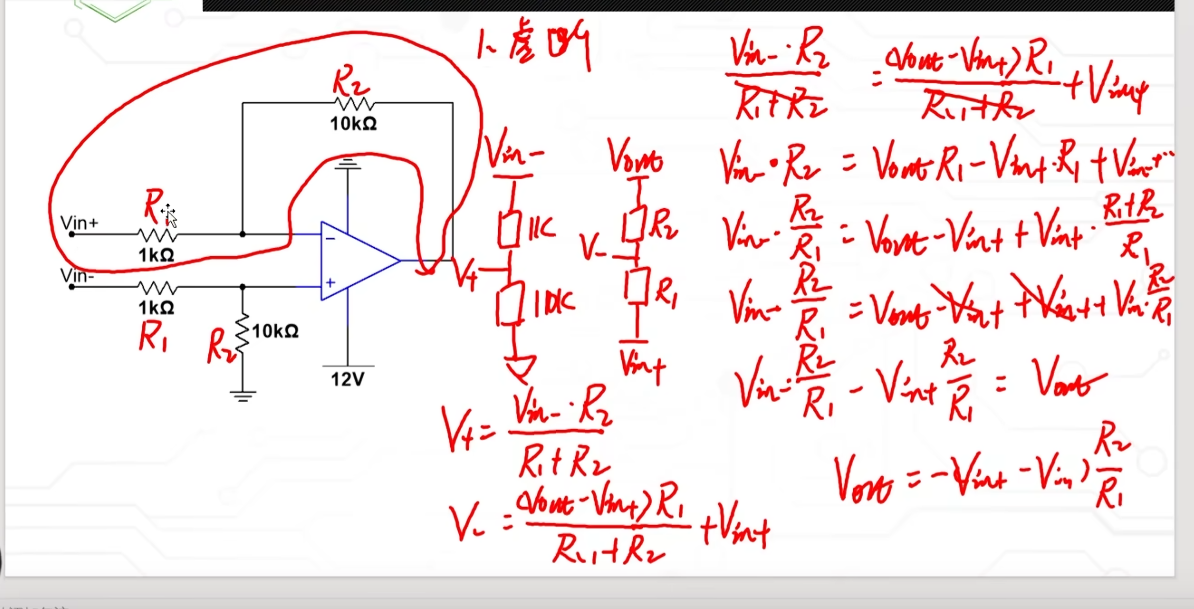 R2
10kΩ
Vin+
R1
1kΩ
Vin-
1kΩ
R1
R2
10kΩ
-
+
12V
1、虚
Vin-
1K
V+
10K
Vout
R2
V-
R1
Vin+
V+ = Vin-·R2 / R1+R2
V- = (Vout-Vin+)R1 / R1+R2 + Vin+
Vin-·R2 / R1+R2 = (Vout-Vin+)R1 / R1+R2 + Vin+
Vin-·R2 = Vout R1 - Vin+·R1 + Vin+
Vin-·R2/R1 = Vout - Vin+ + Vin+·R1+R2/R1
Vin-·R2/R1 = Vout - Vin+ + Vin+ + Vin·R2/R1
Vin-·R2/R1 - Vin+ R2/R1 = Vout
Vout = -Vin+ - Vin-) R2/R1